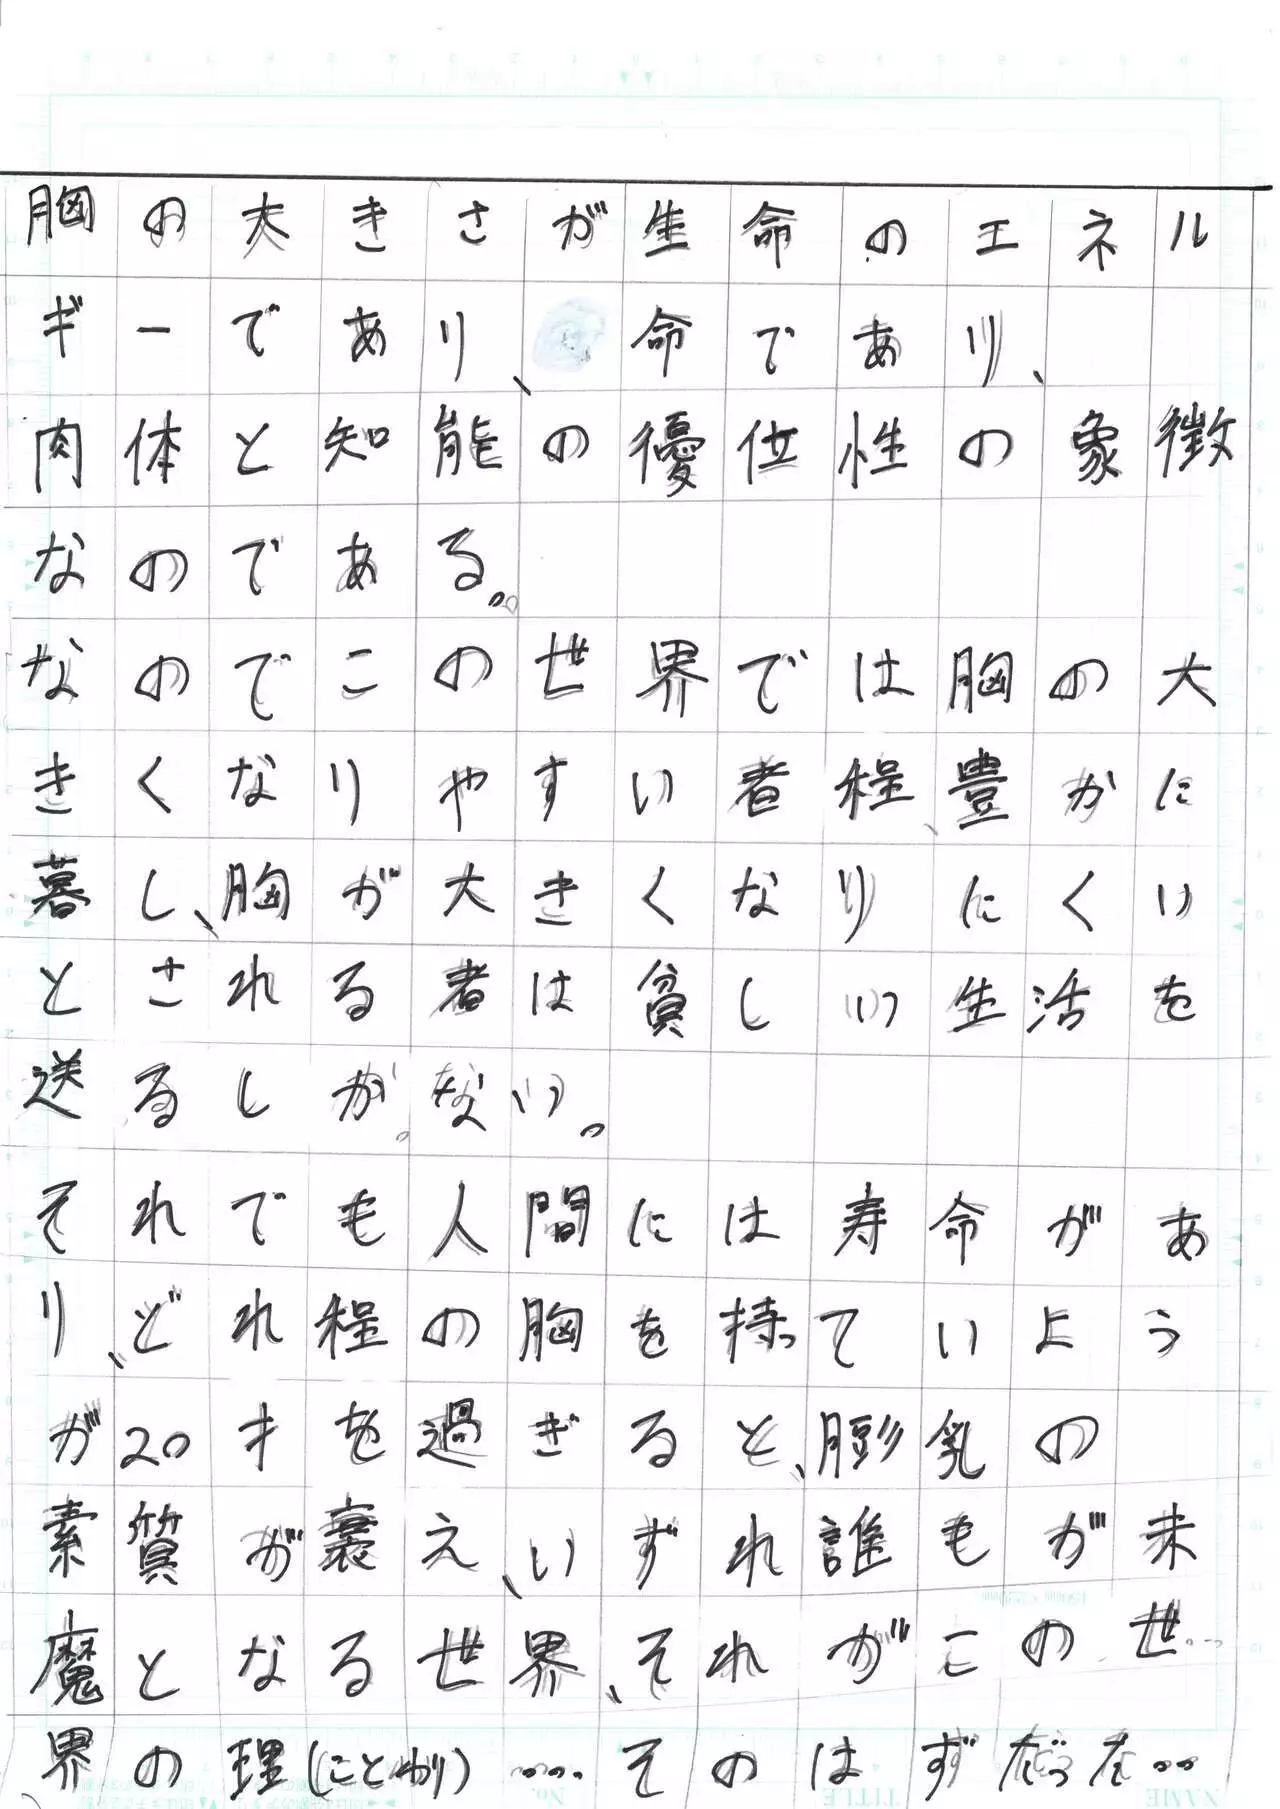 胸の大きさが生命のエネル
ギーであり、命であり、
肉体と知能の優位性の象徴
なのである。
なのでこの世界では胸の大
きくなりやすい者程、豊かに
暮し、胸が大きくなりにくい
とされる者は貧しい生活を
送るしがない。
それでも人間には寿命があ
り、どれ程の胸を持っていよう
が20才を過ぎると、膨乳の
素質が衰え、いずれ誰もが未
魔となる世界、それがこの世
界の理(ことわり)……そのはずだった…